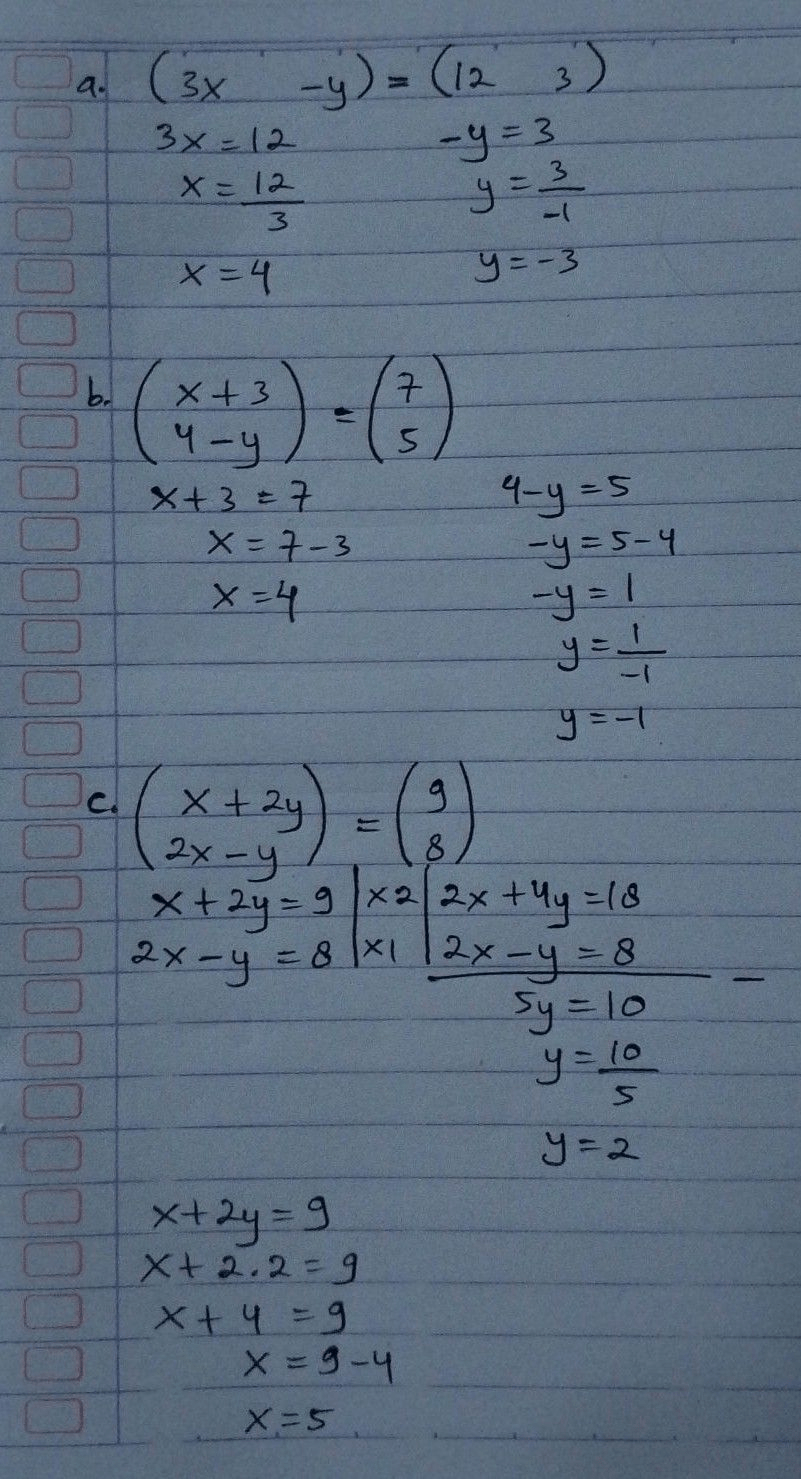 a. (3x -y) = (12 3)
3x = 12 -y = 3
x = 12/3 y = 3/-1
x = 4 y = -3
b. (x + 3 4 - y) = (7 5)
x + 3 = 7 4 - y = 5
x = 7 - 3 -y = 5 - 4
x = 4 -y = 1
y = 1/-1
y = -1
c. (x + 2y 2x - y) = (9 8)
x + 2y = 9 | x2 | 2x + 4y = 18
2x - y = 8 | x1 | 2x - y = 8 -
5y = 10
y = 10/5
y = 2
x + 2y = 9
x + 2 . 2 = 9
x + 4 = 9
x = 9 - 4
x = 5